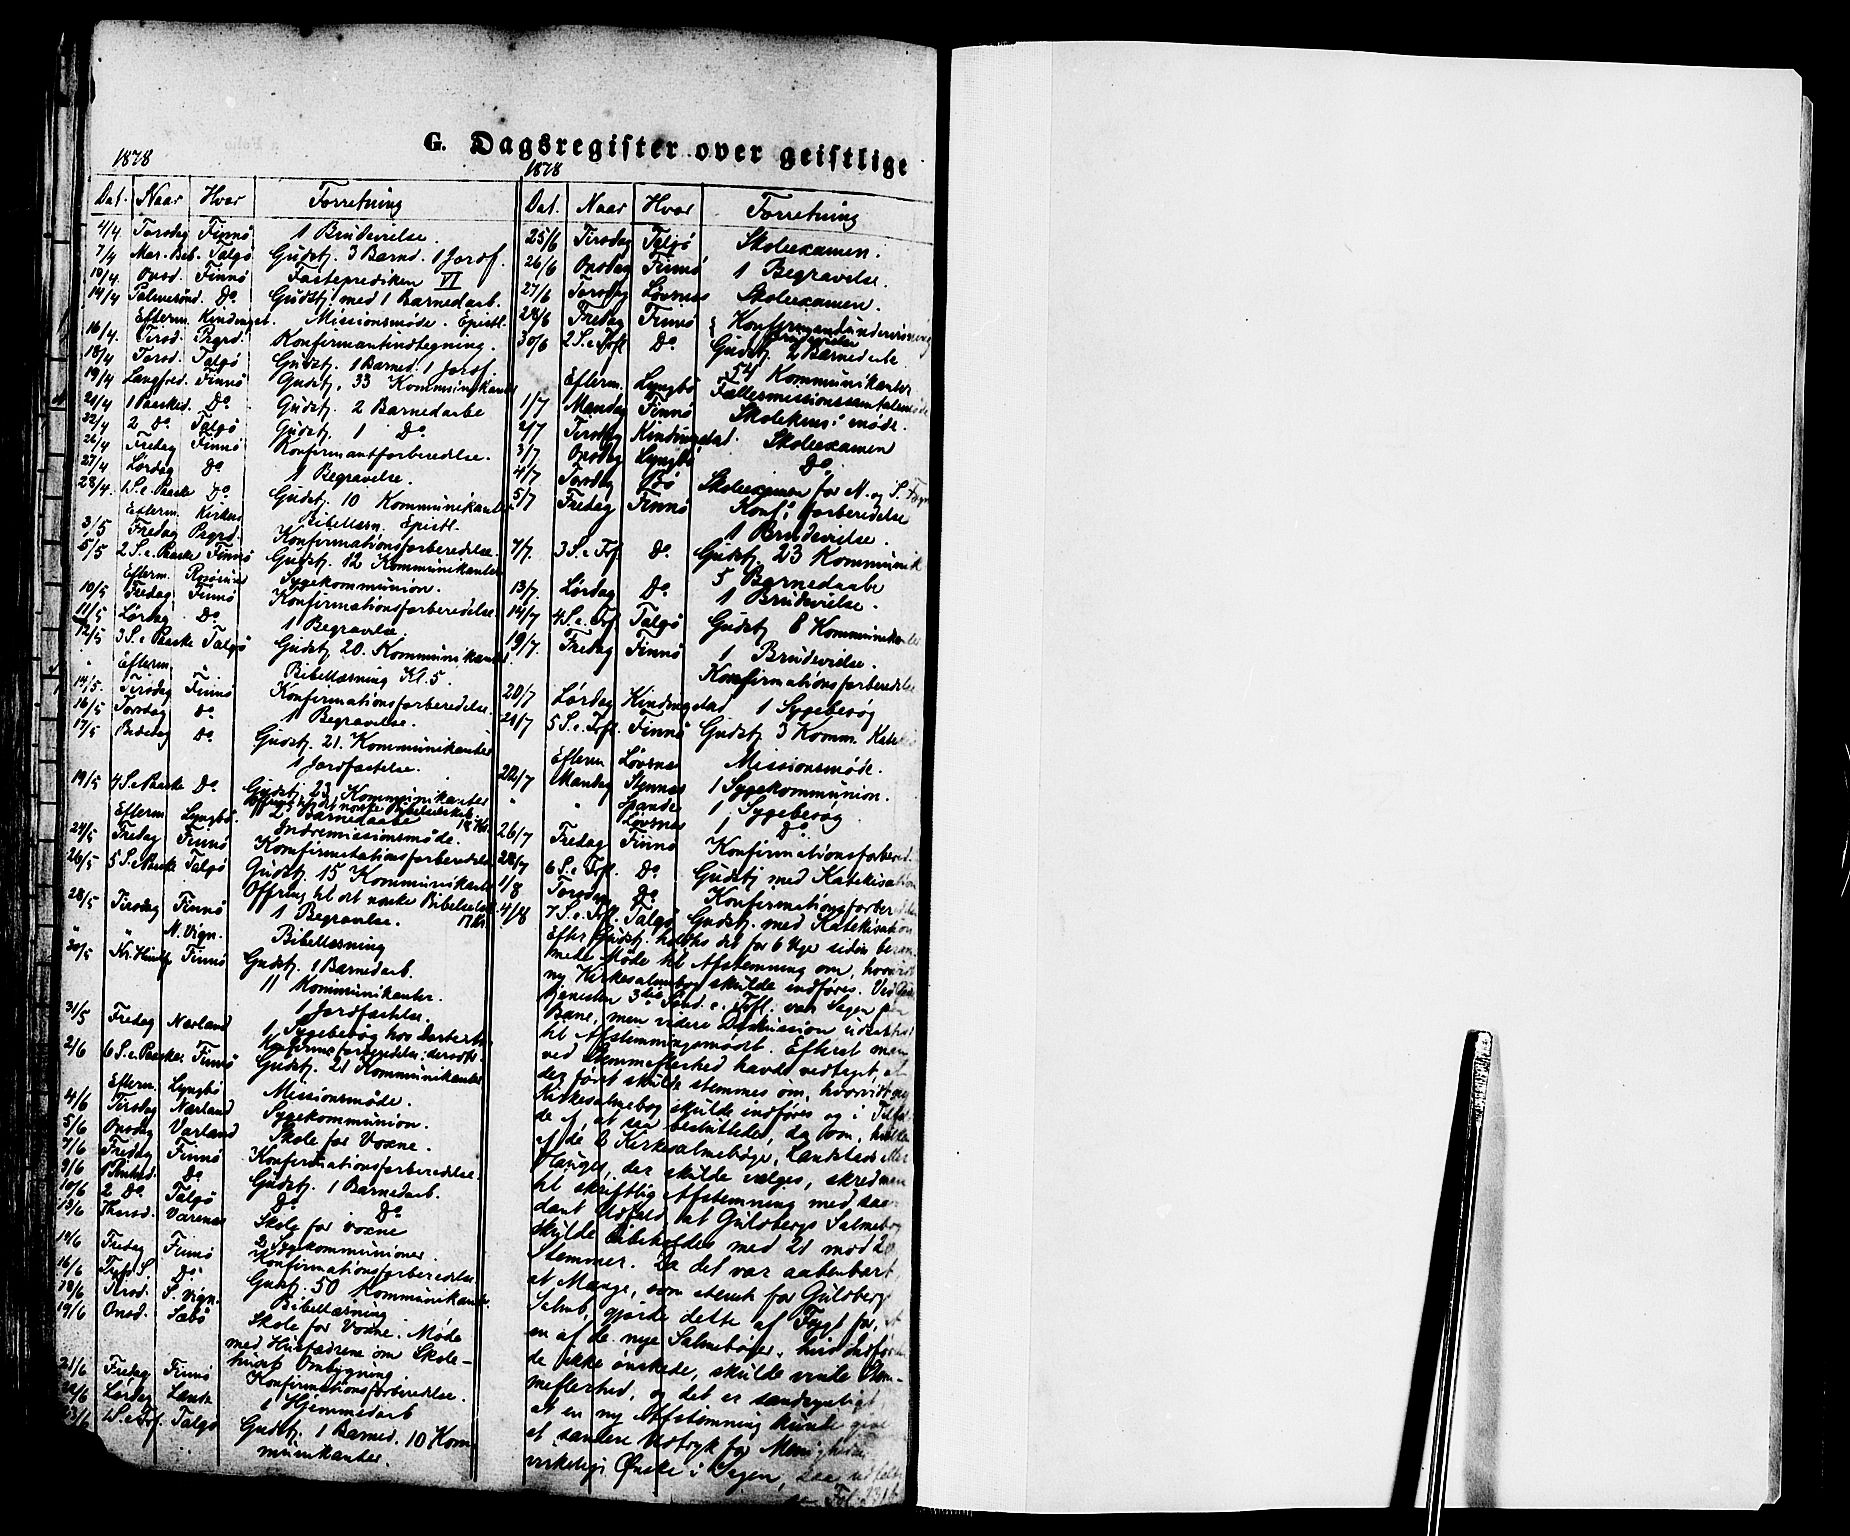 G. Dagsregister over geistlige
1878
Dat. Naar Hvor Forretning
4/4 Torsdag Finnø 1 Brudevielse.
7/4 Mar. Beb. Talgø Gudstj. 3 Barned. 1 Jordf.
10/4 Onsd. Finnø Fasteprediken VI
14/4 Palmesønd. Do Gudstj. med 1 Barnedaab.
Efterm. Kindingst. Missionsmøde. Epistl.
16/4. Tirsd. Prgrd. Konfirmantindtegning.
18/4 Torsd. Talgø Gudstj. 1 Barned. 1 Jordf.
19/4 Langfred. Finnø Gudstj. 33 Kommunikanter
21/4 1 Paasked. Do Gudstj. 2 Barnedaabe
22/4 2 Do Talgø Gudstj. 1 Do
26/4 Fredag Finnø Konfirmantforberedelse.
27/4 Lørdag Do 1 Begravelse.
28/4. 1 S. e. Paaske Do. Gudstj. 10 Kommunikanter.
Efterm. Bibellæsn. Epistl.
3/5 Fredag Prgrd. Konfirmationsforberedelse.
5/5 2 S. e. Paaske Finnø Gudstj. 12 Kommunikanter
Efterm. Sygekommunion.
10/5 Fredag Finnø Konfirmationsforberedelse.
11/5 Lørdag Do. 1 Begravelse.
12/5 3 S. e. Paaske Talgø Gudstj. 20. Kommunikanter
" Efterm. " Bibellæsning Kl. 5.
14/5. Tirsdag Finnø Konfirmationsforberedelse.
16/5 Torsdag Do 1 Begravelse.
17/5 Bededag Do. Gudstj. 21. Kommunikanter
1 Jordfæstelse.
19/5 4 S. e. Paaske Do. Gudstj. 23 Kommunikanter
Offring til det norske Bibelselsk. 12 Kr.
2 Barnedaabe
Efterm Lyngbø. Indremissionsmøde.
24/5 Fredag Finnø Konfirmationsforberedelse
26/5 5 S. e. Paaske Talgø Gudstj. 15 Kommunikanter
Offring til det norske Bibelselsk. 17 Kr.
28/5 Tirsdag Finnø 1 Begravelse.
" " N. Vign. Bibellæsning
30/5 Kr. Himlf. Finnø Gudstj. 1 Barnedaab.
11 Kommunikanter.
1 Jordfæstelse.
31/5 Fredag Nærland 1 Sygebesøg hos
Konfirmforberedelse
2/6 6 S. e. Paaske Finnø Gudstj. 21 Kommunikanter
Efterm. Lyngbø Missionsmøde.
4/6 Tirsdag Nærland Sygekommunion.
5/6 Onsdag Varland Skole for Voxne.
7/6 Fredag Finnø Konfirmationsforberedelse.
9/6 Do. Gudstj. 1 Barnedaab.
10/6 2 Do. Talgø Do Do
13/6 Thorsd. Værenes Skole for Voxne
2 Sygekommunioner.
14/6 Fredag Finnø Konfirmationsforberedelse
16/6 Tref. S. Do. Gudstj. 50 Kommunikanter.
18/6 Tirsd. S. Vign. Bibellæsning
19/6 Onsd. Sæbø Skole for Voxne. Møde
med Husfædrene om Skole-
husets Ombygning.
21/6 Fredag Finnø Konfirmationsforberedelse.
22/6 Lørdag 1 Hjemmedaab
23/6 1 S. e. Tref. Talgø Gudstj. 1 Barned. 10 Kom-
munikanter.
1878
Dat. Naar Hvor Forretning
25/6 Tirsdag Talgø Skoleexamen.
26/6 Onsdag Finnø 1 Begravelse.
27/6 Torsdag Løvsnes Skoleexamen.
28/6 Fredag Finnø Konfirmandundervisning
1 Brudevielse
30/6 2 S. e. Tref. Do Gudstj. 2 Barnedaabe
54 Kommunikanter
Efterm. Lyngbø Fællesmissionssamtalemøde
1/7 Mandag Finnø Skolekoms: møde.
2/7 Tirsdag Kindingstad. Skoleexamen
3/7 Onsdag Lyngbø Do.
4/7 Torsdag Bø Skoleexamen for N. og S.
5/7 Fredag Finnø Konf: forberedelse
1 Brudevielse.
7/7. 3 S. e. Tref. Do. Gudstj. 23 Kommunik
5 Barnedaabe
13/7. Lørdag Do. 1 Brudevielse.
14/7 4 S. e. Tref. Talgø Gudstj 8 Kommunikanter
19/7 Fredag Finnø 1 Brudevielse.
Konfirmationsforberedelse
20/7 Lørdag Kindingstad 1 Sygebesøg
21/7 5 S. e. Tref. Finnø Gudstj 3 Komm.
Efterm Løvsnes Missionsmøde.
22/7 Mandag Stennes 1 Sygekommunion.
" " Spande 1 Sygebesøg
Løvsnes 1 Do.
26/7 Fredag Finnø Konfirmationsforbered.
28/7 6 S. e. Tref. Do. Gudstj med Katekisation
1/8 Torsdag Do Konfirmationsforberedelse
4/8 7 S. e. Tref. Talgø Gudstj. med Katekisation
Efter Gudstj. holdtes det for 6 Uger siden beram-
mede Møde til Afstemning om, hvorvidt
ny Kirkesalmebog skulde indføres. Ved
tjenesten 3die Sønd. e. Tref. var Sagen paa
Bane, men videre Diskussion
til Afstemningsmødet. Efterat man
ved Stemmeflerhed havde vedtaget, at
der først skulde stemmes om, hvorvidt ny
Kirkesalmebog skulde indføres og i Tilfæl-
de af, at saa besluttedes, da om, hvilken
af de 2 Kirkesalmebøger, Landstads eller
Hauges, der skulde vælges, skred man
til skriftlig Afstemning med saa-
dant Udfald at Guldbergs Salmebog
skulde bibeholdes med 21 mod 20
Stemmer. Da det var aabenbart,
at Mange, som stemte for Guldbergs
Salmb. gjorde dette af Frygt for, at
en af de nye Salmebøger, hvis Indførelse
de ikke ønskede, skulde vinde Stem-
meflerhed, og det er sandsynligt,
at en ny Afstemning kunde give
et sandere Udtryk for Menighedens
virkelige Ønske i Sagen,